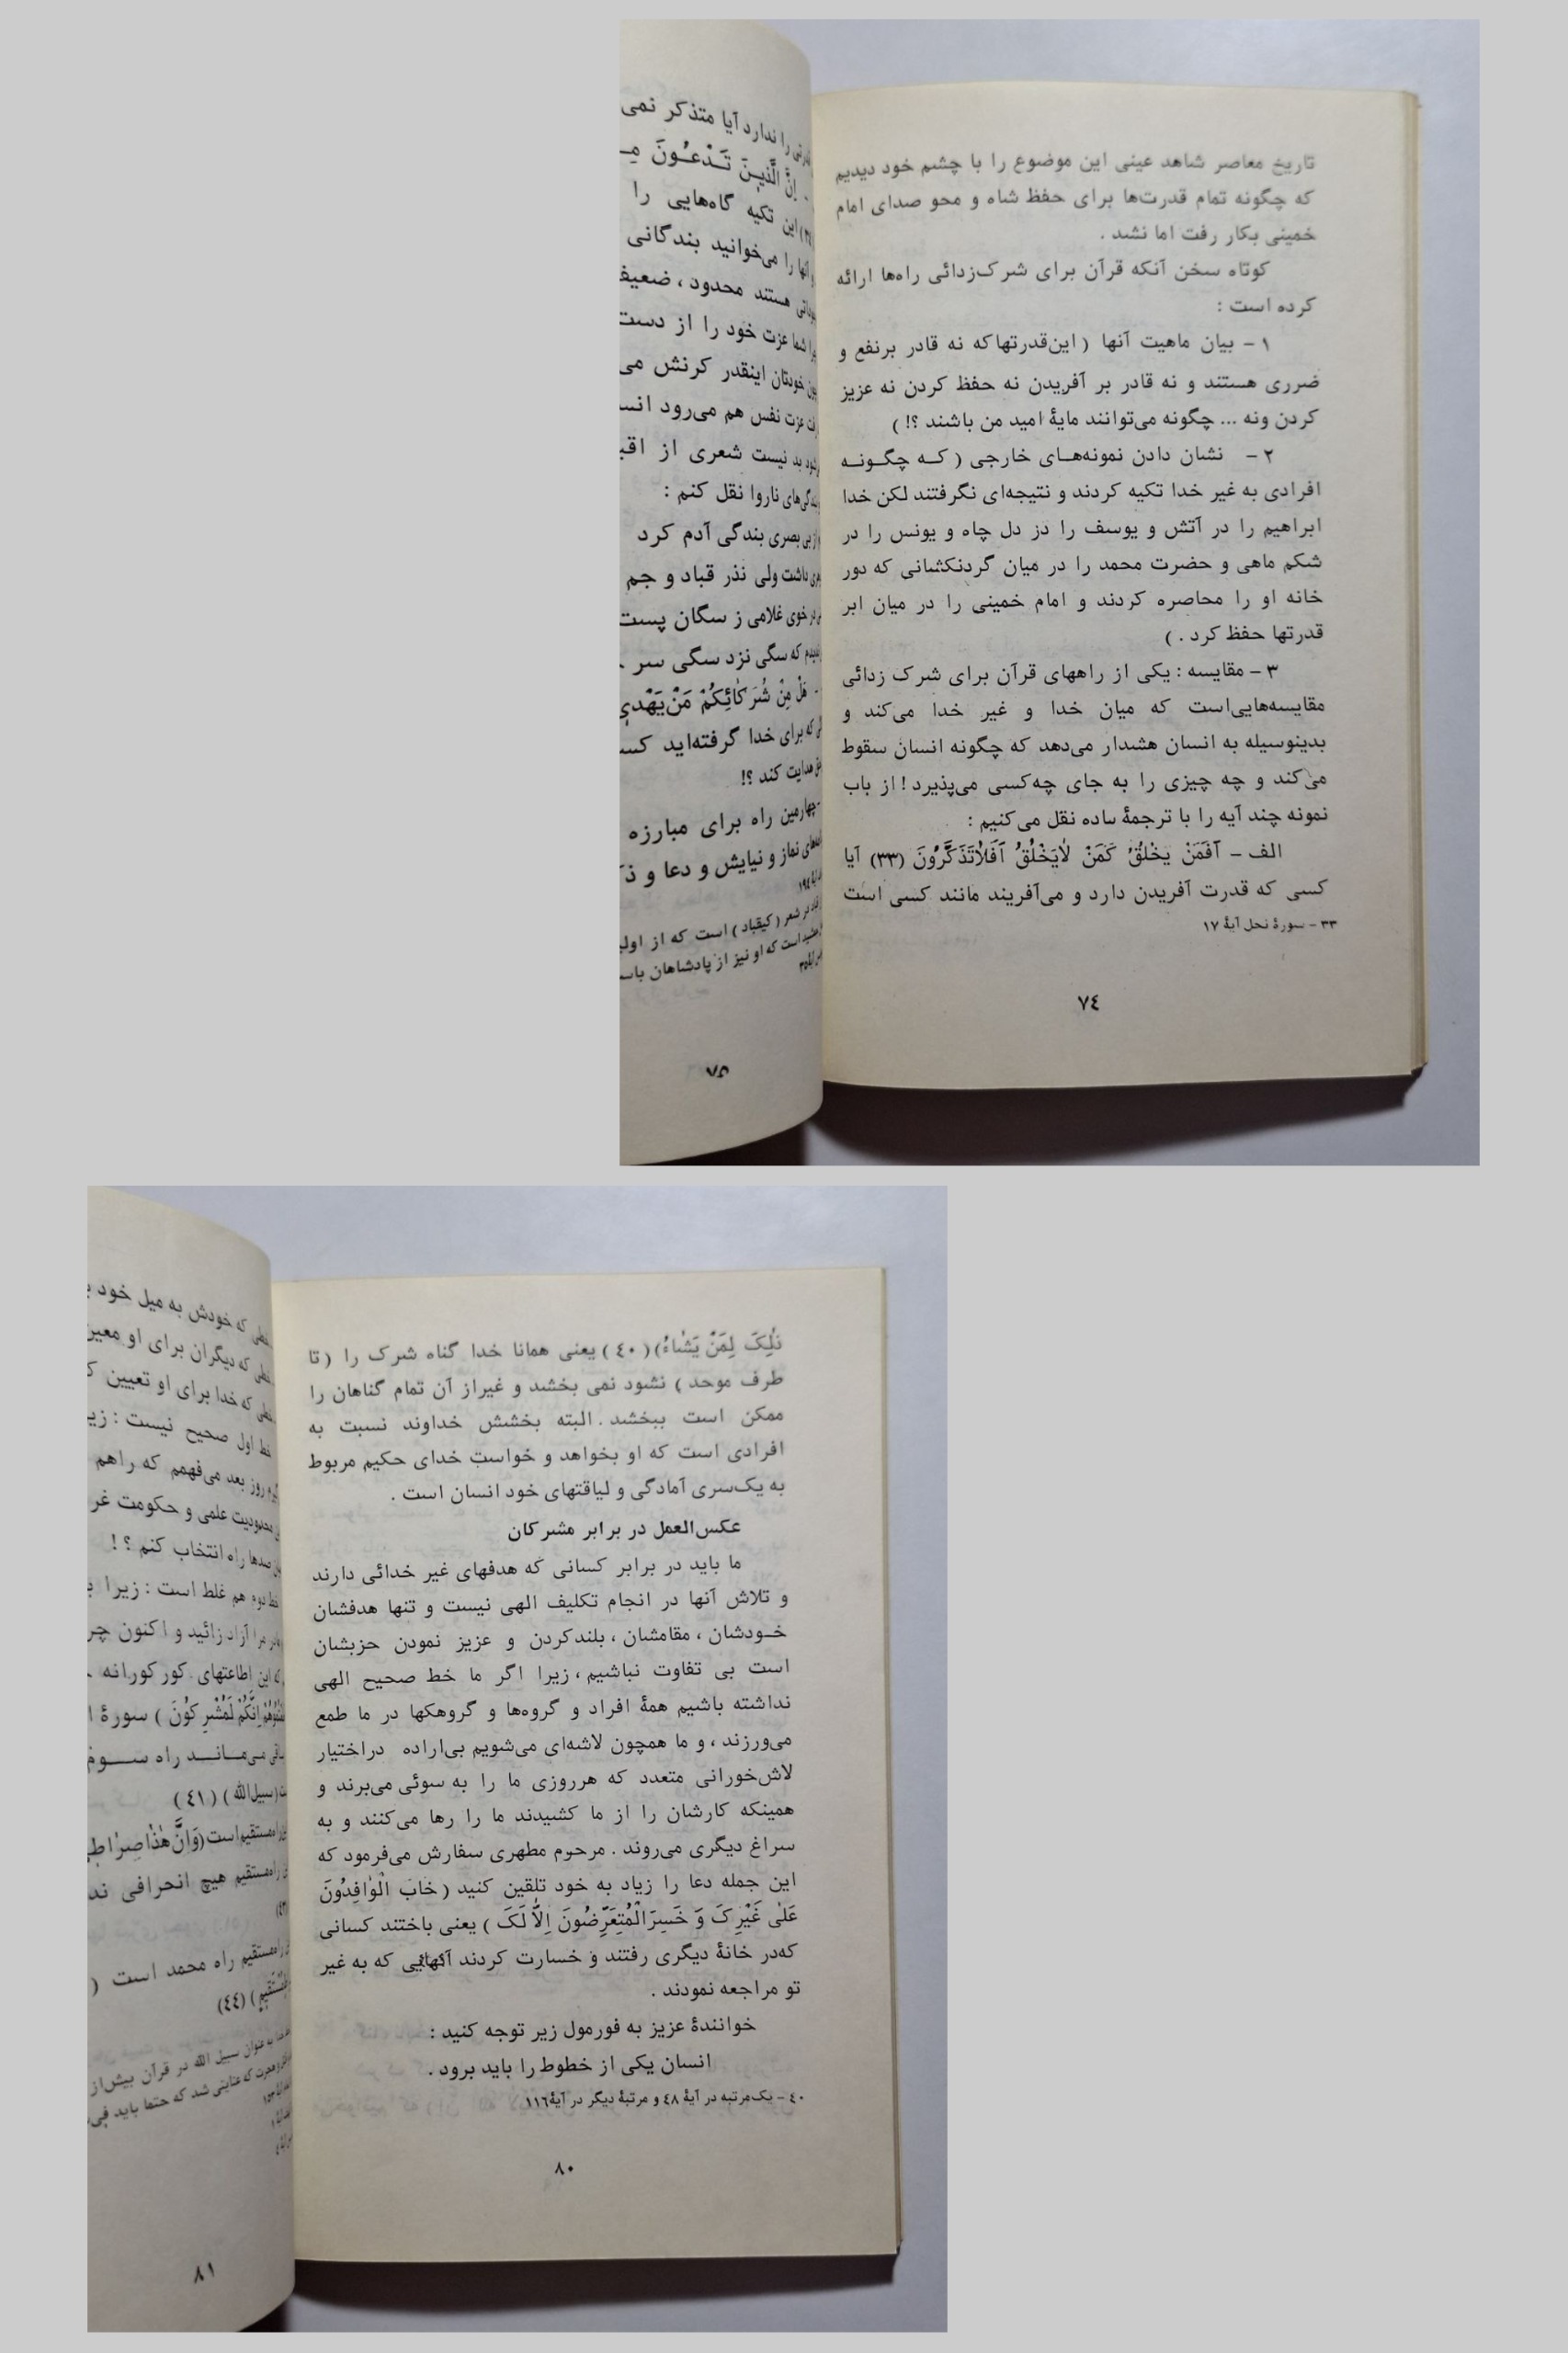 تاریخ معاصر شاهد عینی این موضوع را با چشم خود دیدیم
که چگونه تمام قدرت‌ها برای حفظ شاه و محو صدای امام
خمینی بکار رفت اما نشد .
کوتاه سخن آنکه قرآن برای شرک‌زدائی راه‌ها ارائه
کرده است :
۱ - بیان ماهیت آنها ( این‌قدرتها‌که نه قادر برنفع و
ضرری هستند و نه قادر بر آفریدن نه حفظ کردن نه عزیز
کردن ونه ... چگونه می‌توانند مایهٔ امید من باشند ؟! )
۲ - نشان دادن نمونه‌هـای خارجی ( کـه چگـونـه
افرادی به غیر خدا تکیه کردند و نتیجه‌ای نگرفتند لکن خدا
ابراهیم را در آتش و یوسف را در دل چاه و یونس را در
شکم ماهی و حضرت محمد را در میان گردنکشانی که دور
خانه او را محاصره کردند و امام خمینی را در میان ابر
قدرتها حفظ کرد . )
۳ - مقایسه : یکی از راههای قرآن برای شرک زدائی
مقایسه‌هایی‌است که میان خدا و غیر خدا می‌کند و
بدینوسیله به انسان هشدار می‌دهد که چگونه انسان سقوط
می‌کند و چه چیزی را به جای چه‌کسی می‌پذیرد ! از باب
نمونه چند آیه را با ترجمهٔ ساده نقل می‌کنیم :
الف - اَفَمَنْ یَخْلُقُ کَمَنْ لاٰیَخْلُقُ اَفَلاٰتَذَکَّرُونَ (۳۳) آیا
کسی که قدرت آفریدن دارد و می‌آفریند مانند کسی است
۳۳ - سورهٔ نحل آیهٔ ۱۷
۷٤
را ندارد آیا متذکر نمی
اِنَّ الَّذینَ تَـدْعـُونَ مِـ
این تکیه گاه‌هایی را
آنها را می‌خوانید بندگانی
هستند محدود ، ضعیف
شما عزت خود را از دست
خودتان اینقدر کرنش می
عزت نفس هم می‌رود
بد نیست شعری از
ناروا نقل کنم :
بی بصری بندگی آدم کرد
داشت ولی نذر قباد و جم
خوی غلامی ز سگان پست
ندیدم که سگی نزد سگی سر
هَلْ مِنْ شُرَکٰائِکُمْ مَنْ‌یَهْدی
که برای خدا گرفته‌اید
هدایت کند ؟!
چهارمین راه برای مبارزه
نماز و نیایش و دعا و
در شعر ( کیقباد ) است که از
است که او نیز از پادشاهان
۷۵
ذٰلِکَ لِمَنْ یَشٰاءُ) ( ٤٠ ) یعنی همانا خدا گناه شرک را ( تا
طرف موحد ) نشود نمی بخشد و غیراز آن تمام گناهان را
ممکن است ببخشد . البته بخشش خداوند نسبت به
افرادی است که او بخواهد و خواست خدای حکیم مربوط
به یک‌سری آمادگی و لیاقتهای خود انسان است .
عکس‌العمل در برابر مشرکان
ما باید در برابر کسانی که هدفهای غیر خدائی دارند
و تلاش آنها در انجام تکلیف الهی نیست و تنها هدفشان
خـودشان ، مقامشان ، بلندکردن و عزیز نمودن حزبشان
است بی تفاوت نباشیم ، زیرا اگر ما خط صحیح الهی
نداشته باشیم همهٔ افراد و گروه‌ها و گروهکها در ما طمع
می‌ورزند ، و ما همچون لاشه‌ای می‌شویم بی‌اراده دراختیار
لاش‌خورانی متعدد که هرروزی ما را به سوئی می‌برند و
همینکه کارشان را از ما کشیدند ما را رها می‌کنند و به
سراغ دیگری می‌روند . مرحوم مطهری سفارش می‌فرمود که
این جمله دعا را زیاد به خود تلقین کنید ( خابَ الْوٰافِدُونَ
عَلٰی غَیْرِکَ وَ خَسِرَالْمُتِعَرِّضُونَ اِلاّٰ لَکَ ) یعنی باختند کسانی
که‌در خانهٔ دیگری رفتند و خسارت کردند آنهایی که به غیر
تو مراجعه نمودند .
خوانندهٔ عزیز به فورمول زیر توجه کنید :
انسان یکی از خطوط را باید برود .
٤٠ - یک‌مرتبه در آیهٔ ٤٨ و مرتبهٔ دیگر در آیهٔ ١١٦
٨٠
که خودش به میل خود
که دیگران برای او
که خدا برای او تعیین
خط اول صحیح نیست :
روز بعد می‌فهمم که راهم
محدودیت علمی و حکومت
صدها راه انتخاب کنم ؟ !
خط دوم هم غلط است : زیرا
مرا آزاد زائید و اکنون
که این اطاعتهای کورکورانه
اِنَّکُمْ لَمُشْرِکُونَ ) سورهٔ
می‌مـانـــد راه ســـوم
(سبیل‌الله ) ( ٤١ )
مستقیم‌است (وَاَنَّ هٰذٰا صِرٰاطی
راه‌مستقیم هیچ انحرافی
راه‌مستقیم راه محمد است (
(٤٤)
به عنوان سبیل الله در قرآن بیش از
که عنایتی شد که حتما باید
٨١